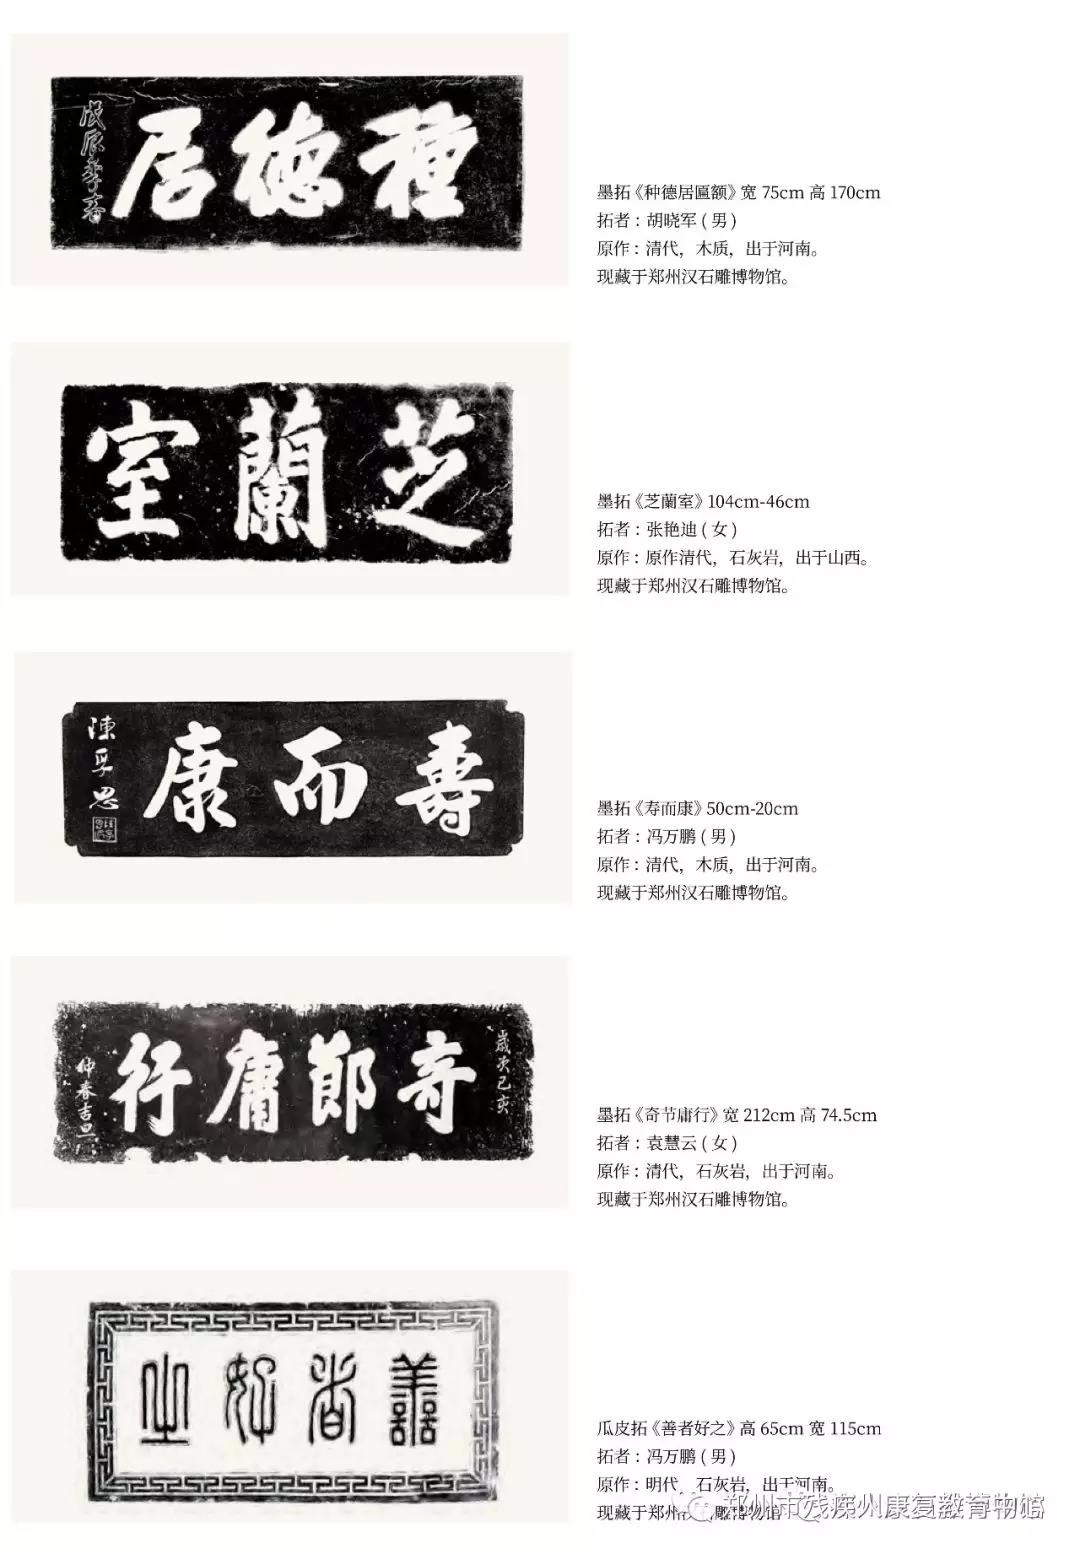 種德居
戊辰季春
墨拓《种德居匾额》宽 75cm 高 170cm
拓者：胡晓军 ( 男 )
原作：清代，木质，出于河南。
现藏于郑州汉石雕博物馆。
芝蘭室
墨拓《芝蘭室》104cm-46cm
拓者：张艳迪 ( 女 )
原作：原作清代，石灰岩，出于山西。
现藏于郑州汉石雕博物馆。
壽而康
陳孚恩
墨拓《寿而康》50cm-20cm
拓者：冯万鹏 ( 男 )
原作：清代，木质，出于河南。
现藏于郑州汉石雕博物馆。
歲次已亥
奇節庸行
仲春吉旦
墨拓《奇节庸行》宽 212cm 高 74.5cm
拓者：袁慧云 ( 女 )
原作：清代，石灰岩，出于河南。
现藏于郑州汉石雕博物馆。
善者好之
瓜皮拓《善者好之》高 65cm 宽 115cm
拓者：冯万鹏 ( 男 )
原作：明代，石灰岩，出于河南。
现藏于郑州汉石雕博物馆
郑州市残疾人康复教育中心